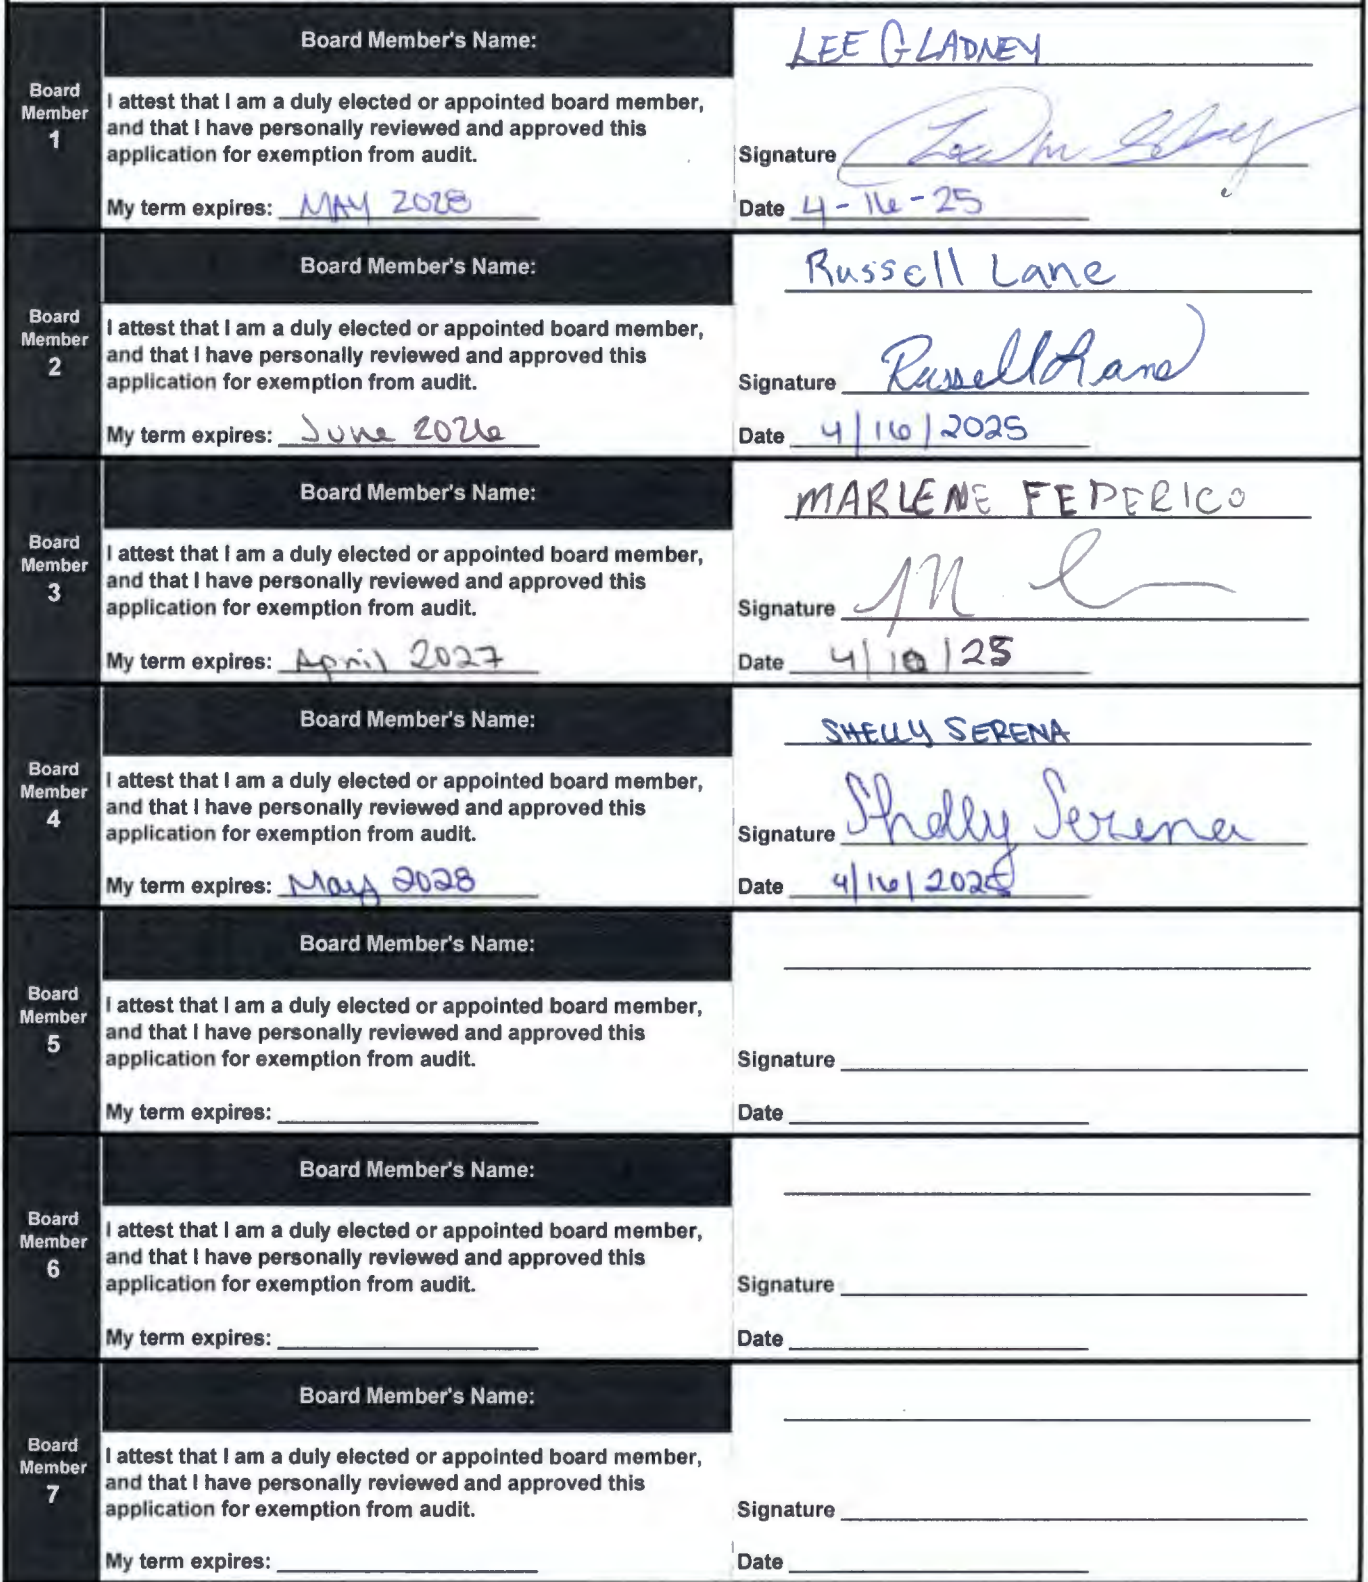 Board Member 1
Board Member's Name: LEE GLADNEY
I attest that I am a duly elected or appointed board member,
and that I have personally reviewed and approved this
application for exemption from audit.
Signature
My term expires: MAY 2028
Date 4-16-25
Board Member 2
Board Member's Name: Russell Lane
I attest that I am a duly elected or appointed board member,
and that I have personally reviewed and approved this
application for exemption from audit.
Signature Russell Lane
My term expires: June 2026
Date 4/16/2025
Board Member 3
Board Member's Name: MARLENE FEDERICO
I attest that I am a duly elected or appointed board member,
and that I have personally reviewed and approved this
application for exemption from audit.
Signature
My term expires: April 2027
Date
Board Member 4
Board Member's Name: SHELLY SERENA
I attest that I am a duly elected or appointed board member,
and that I have personally reviewed and approved this
application for exemption from audit.
Signature Shelly Serena
My term expires: May 2028
Date 4/16/2025
Board Member 5
Board Member's Name:
I attest that I am a duly elected or appointed board member,
and that I have personally reviewed and approved this
application for exemption from audit.
Signature
My term expires:
Date
Board Member 6
Board Member's Name:
I attest that I am a duly elected or appointed board member,
and that I have personally reviewed and approved this
application for exemption from audit.
Signature
My term expires:
Date
Board Member 7
Board Member's Name:
I attest that I am a duly elected or appointed board member,
and that I have personally reviewed and approved this
application for exemption from audit.
Signature
My term expires:
Date